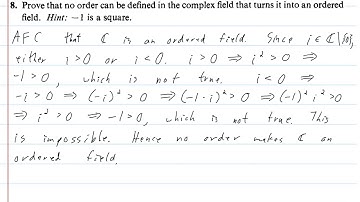 8. Prove that no order can be defined in the complex field that turns it into an ordered
field. Hint: −1 is a square.
AFC that ℂ is an ordered field. Since i ∈ ℂ\{0},
either i > 0 or i < 0. i > 0 ⇒ i² > 0 ⇒
-1 > 0, which is not true. i < 0 ⇒
-i > 0 ⇒ (-i)² > 0 ⇒ (-1·i)² > 0 ⇒ (-1)² i² > 0
⇒ i² > 0 ⇒ -1 > 0, which is not true. This
is impossible. Hence no order makes ℂ an
ordered field.